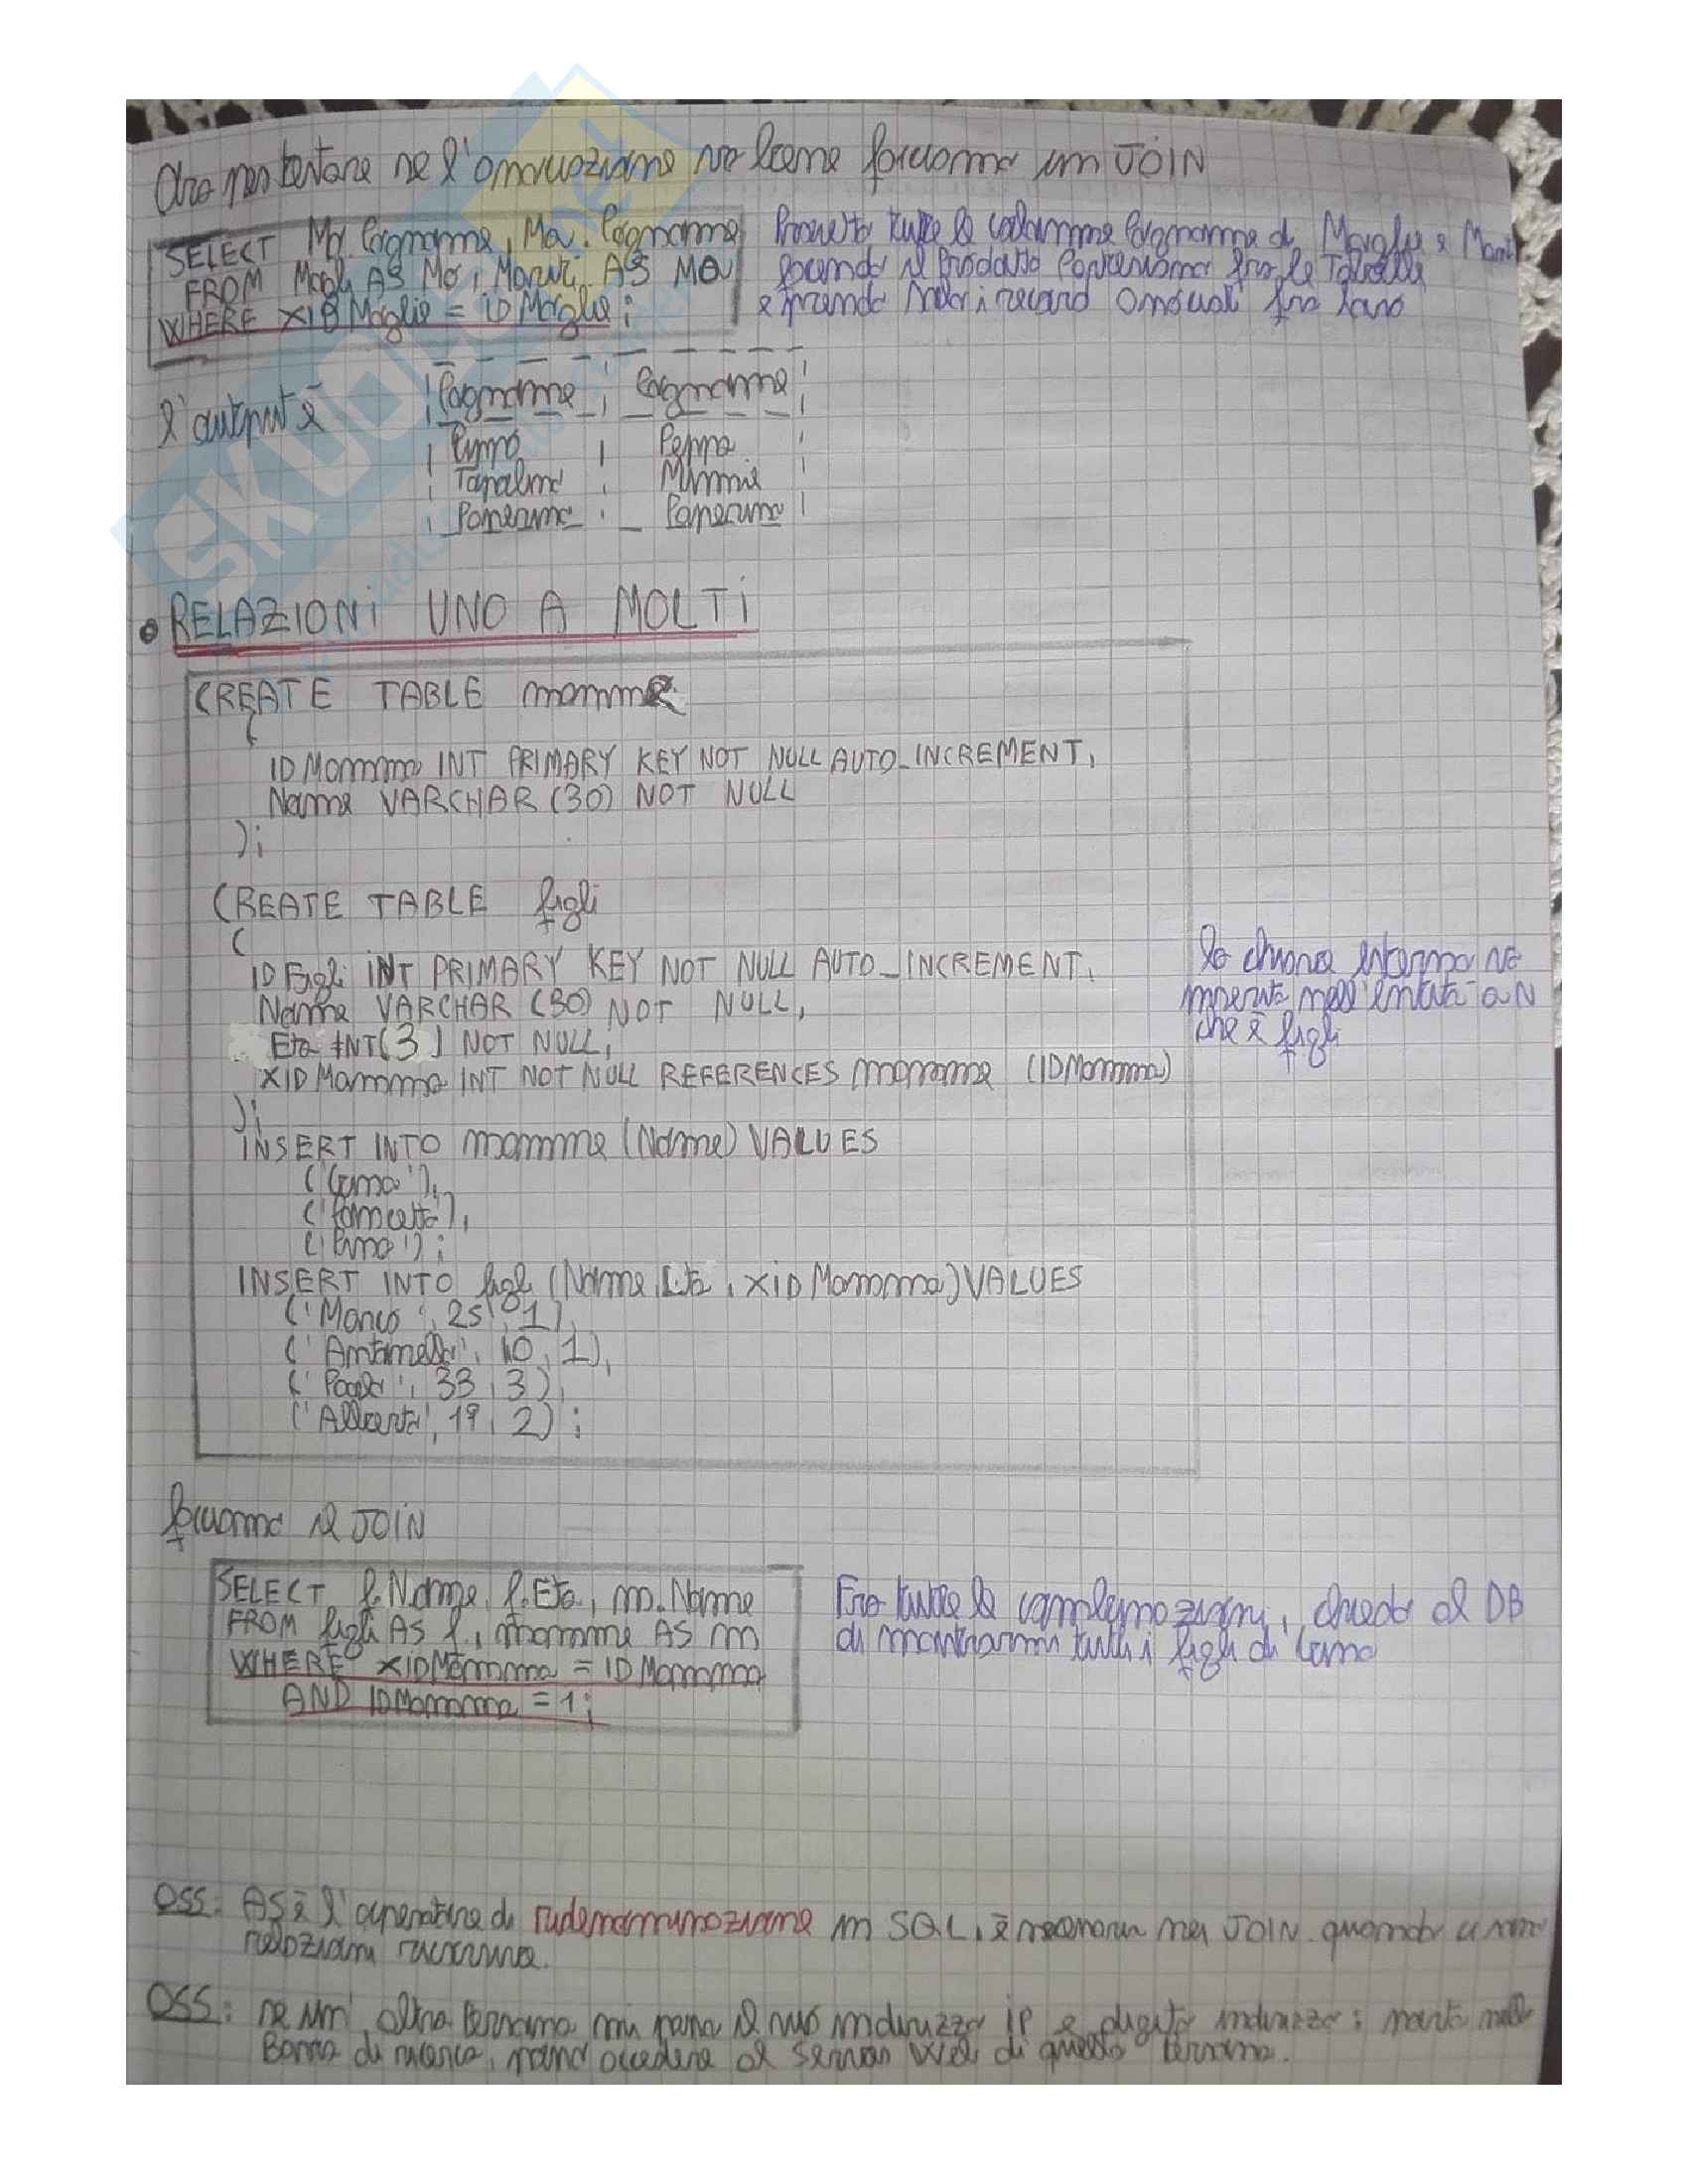 Ora per testare se l'associazione va bene facciamo un JOIN
SELECT Mo.Cognome, Ma.Cognome
FROM Mogli AS Mo, Mariti AS Ma
WHERE XIDMoglie = IDMoglie;
Proietta tutte le colonne Cognome di Moglie e Mariti
facendo il Prodotto Cartesiano fra le Tabelle
e prende solo i record uguali fra loro
l'output è
Cognome Cognome
Pippo Peppa
Minnie
Paperino Paperina
• RELAZIONI UNO A MOLTI
CREATE TABLE mamme
(
IDMamma INT PRIMARY KEY NOT NULL AUTO_INCREMENT,
Nome VARCHAR (30) NOT NULL
);
CREATE TABLE figli
(
IDFigli INT PRIMARY KEY NOT NULL AUTO_INCREMENT,
Nome VARCHAR (30) NOT NULL,
Eta INT(3) NOT NULL,
XIDMamma INT NOT NULL REFERENCES mamme (IDMamma)
);
la chiave esterna va
inserita nell'entità a N
che è figli
INSERT INTO mamme (Nome) VALUES
INSERT INTO figli (Nome, Eta, XIDMamma) VALUES
('Marco', 25, 1),
('Antonella', 10, 1),
('Paola', 33, 3),
('Alberto', 19, 2);
facciamo il JOIN
SELECT f.Nome, f.Eta, m.Nome
FROM figli AS f, mamme AS m
WHERE XIDMamma = IDMamma
AND IDMamma = 1;
Fra tutte le combinazioni, chiedo al DB
di mostrarmi tutti i figli di
OSS: AS è l'operatore di ridenominazione in SQL, è necessario nei JOIN quando ci sono
relazioni ricorsive.
OSS: se un'altra persona mi passa il suo indirizzo IP e digito indirizzo: porta nella
Barra di ricerca, posso accedere al server Web di questa persona.
SKUOLA.net